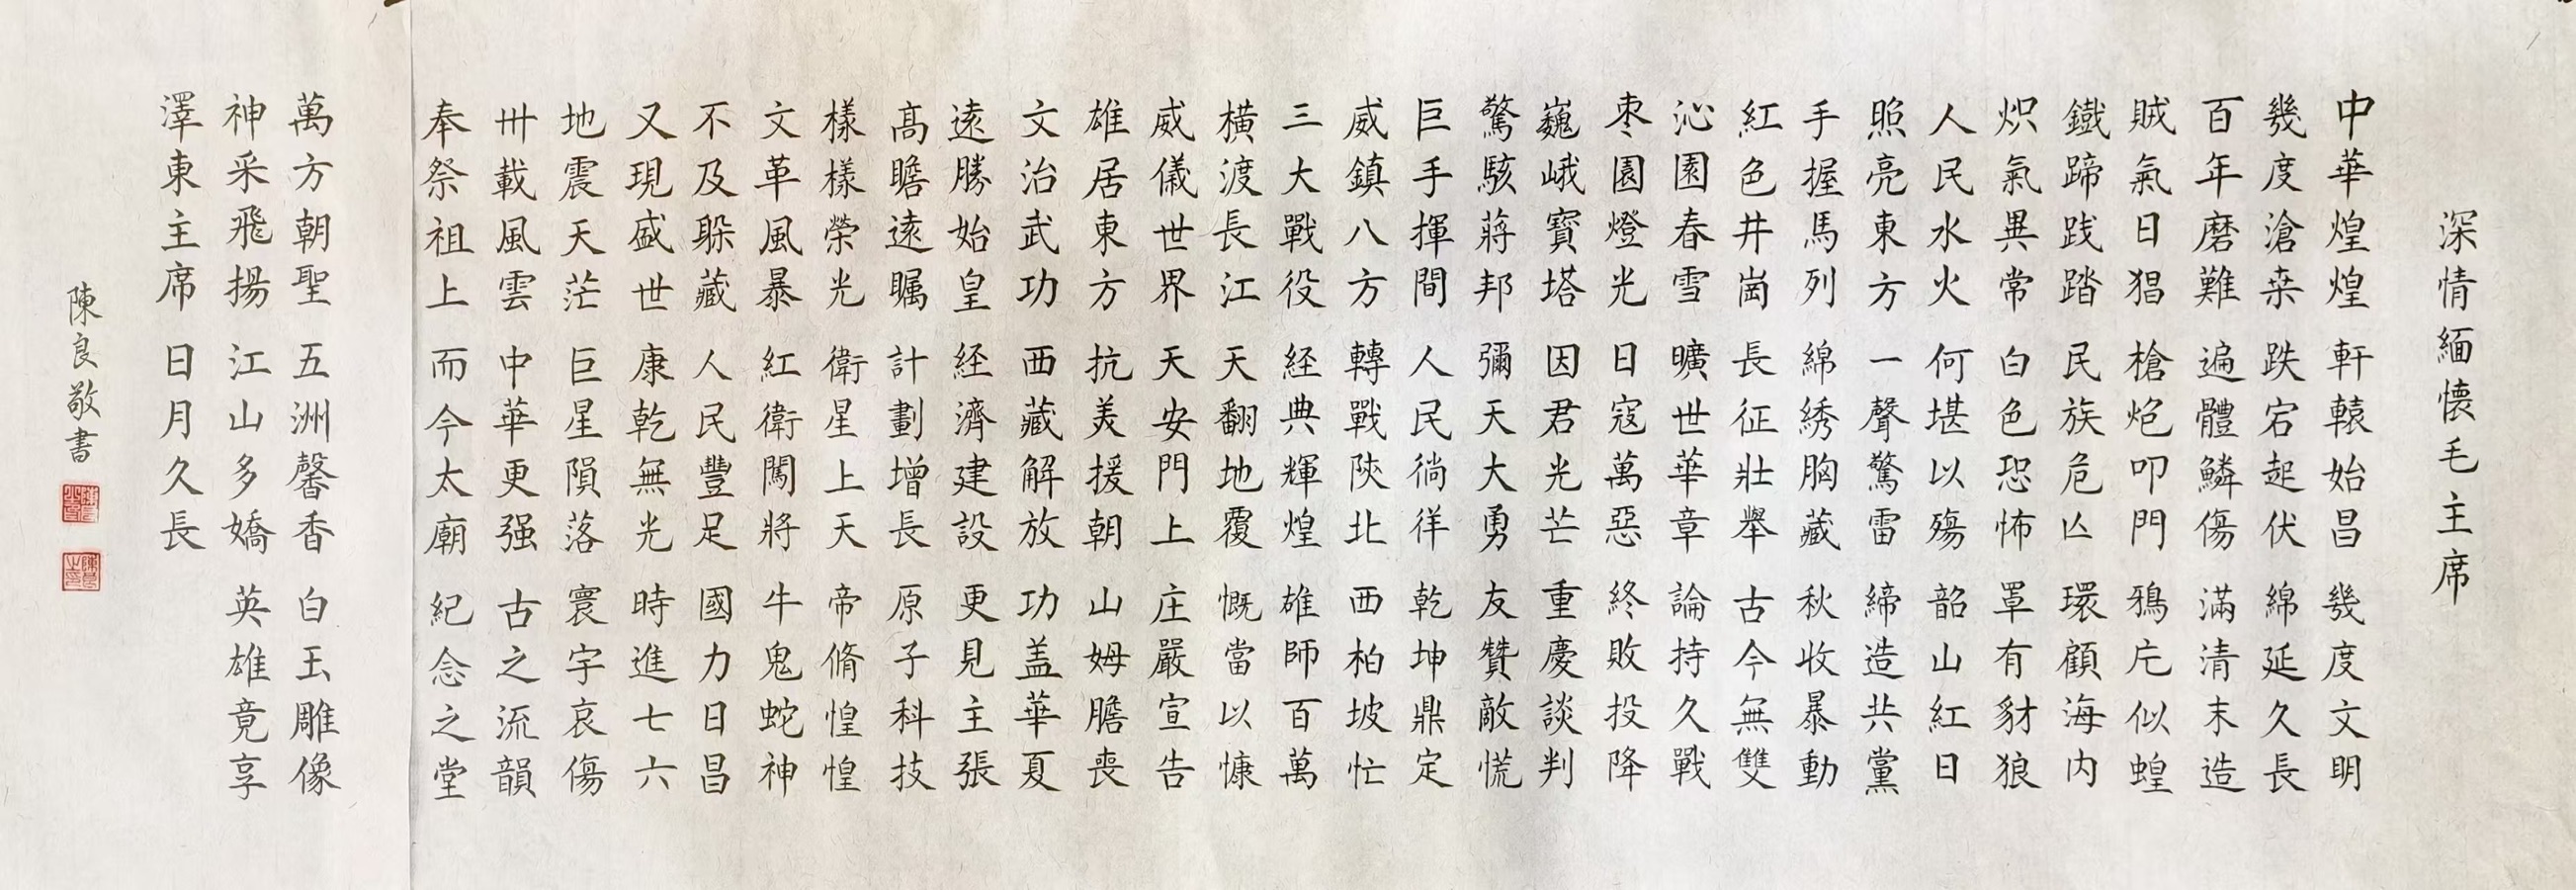 深情緬懷毛主席
中華煌煌 軒轅始昌 幾度文明
幾度滄桑 跌宕起伏 綿延久長
百年磨難 遍體鱗傷 滿清末造
賊氣日猖 槍炮叩門 鴉片似蝗
鐵蹄践踏 民族危亾 環顧海内
炽氣異常 白色恐怖 罩有豺狼
人民水火 何堪以殤 韶山紅日
照亮東方 一聲驚雷 締造共黨
手握馬列 綿綉胸藏 秋收暴動
紅色井崗 長征壯舉 古今無雙
沁園春雪 曠世華章 論持久戰
枣園燈光 日寇萬惡 終敗投降
巍峨寶塔 因君光芒 重慶談判
驚駭蔣邦 彌天大勇 友贊敵慌
巨手揮間 人民徜徉 乾坤鼎定
威鎮八方 轉戰陝北 西柏坡忙
三大戰役 経典輝煌 雄師百萬
橫渡長江 天翻地覆 慨當以慷
威儀世界 天安門上 庄嚴宣告
雄居東方 抗美援朝 山姆膽喪
文治武功 西藏解放 功盖華夏
遠勝始皇 経濟建設 更見主張
高瞻遠瞩 計劃增長 原子科技
樣樣榮光 衛星上天 帝脩惶惶
文革風暴 紅衛闖將 牛鬼蛇神
不及躲藏 人民豐足 國力日昌
又現盛世 康乾無光 時進七六
地震天茫 巨星隕落 寰宇哀傷
卅載風雲 中華更强 古之流韻
奉祭祖上 而今太廟 紀念之堂
萬方朝聖 五洲馨香 白玉雕像
神采飛揚 江山多嬌 英雄竟享
澤東主席 日月久長
陳良敬書